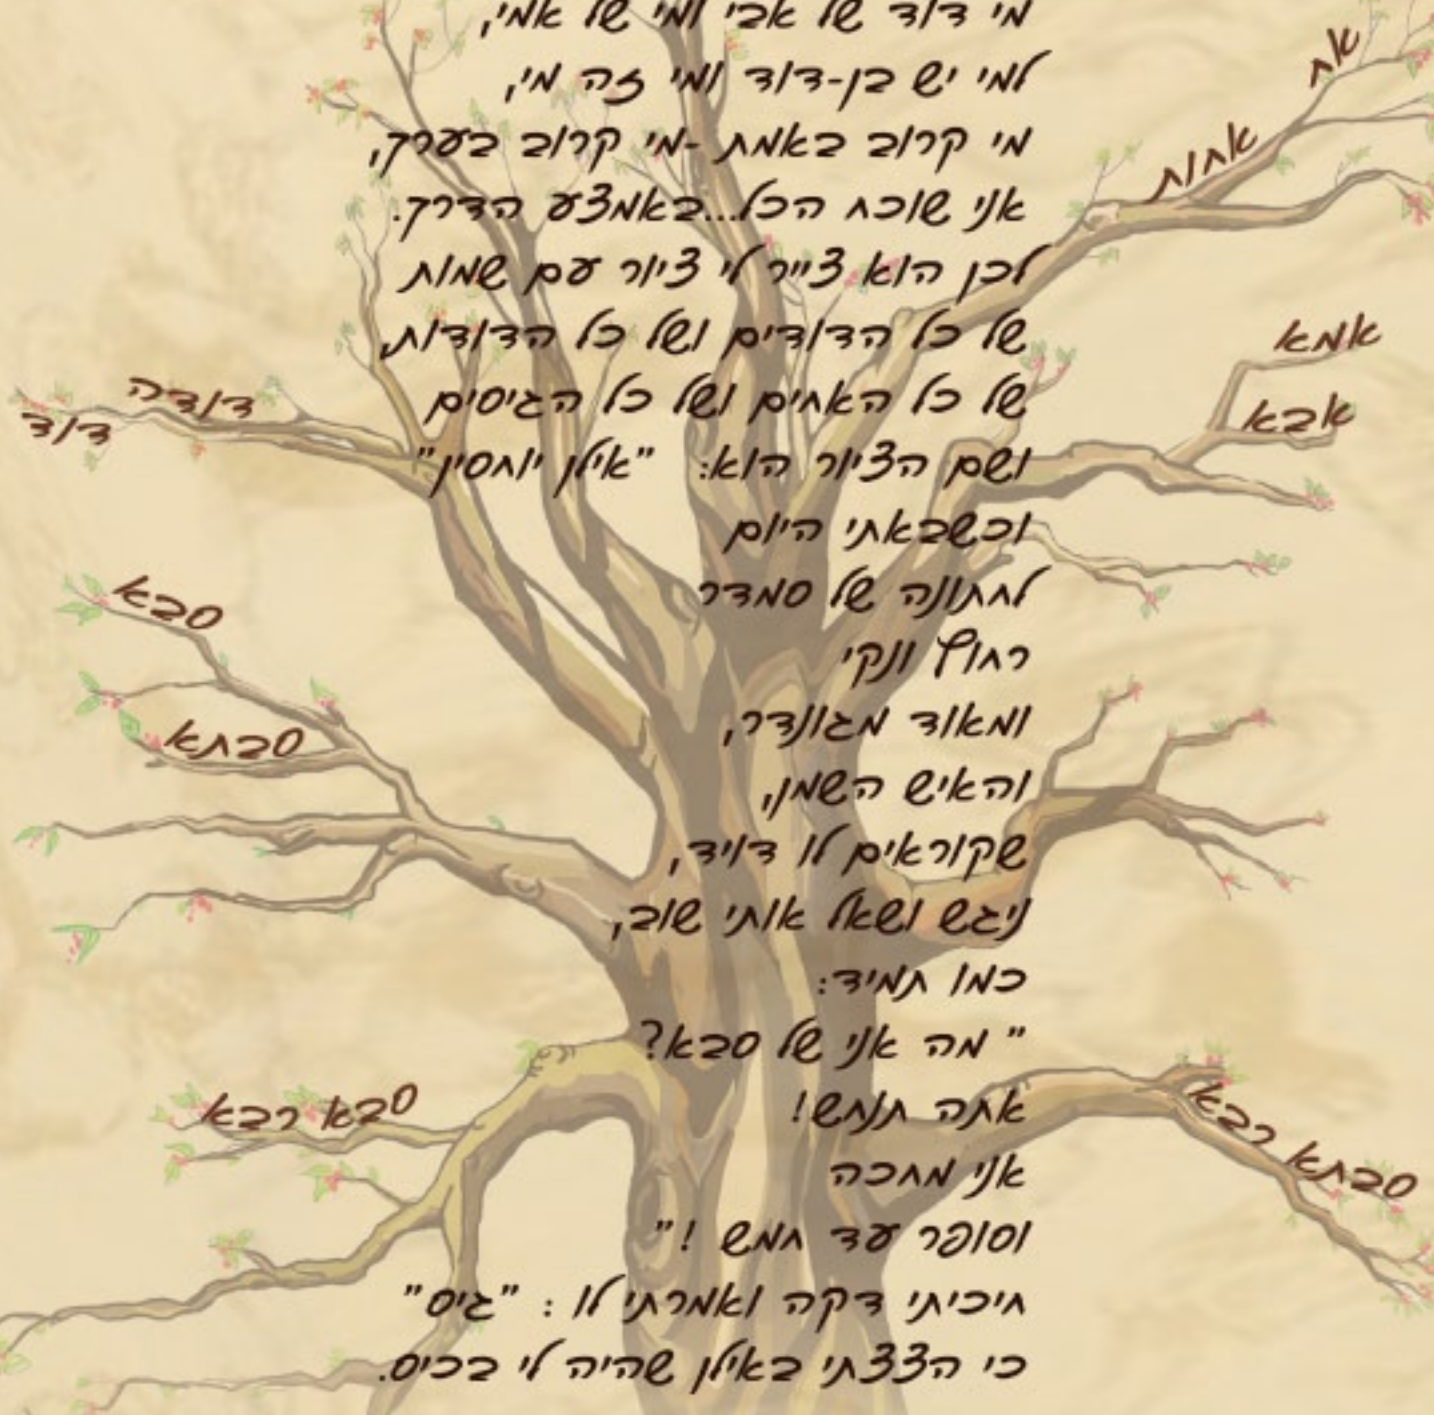 מי דוד של אבי ומי של אמי,
למי יש בן-דוד ומי זה מי,
מי קרוב באמת -מי קרוב בערך,
אני שוכח הכל...באמצע הדרך.
לכן הוא צייר לי ציור עם שמות
של כל הדודים ושל כל הדודות,
של כל האחים ושל כל הגיסים
ושם הציור הוא: "אילן יוחסין"
וכשבאתי היום
לחתונה של סמדר
רחוץ ונקי
ומאוד מגונדר,
והאיש השמן,
שקוראים לו דויד,
ניגש ושאל אותי שוב,
כמו תמיד:
" מה אני של סבא?
אתה תנחש!
אני מחכה
וסופר עד חמש !"
חיכיתי דקה ואמרתי לו : "גיס"
כי הצצתי באילן שהיה לי בכיס.
אח
אחות
אמא
אבא
דודה
דוד
סבא
סבתא
סבא רבא
סבתא רבא